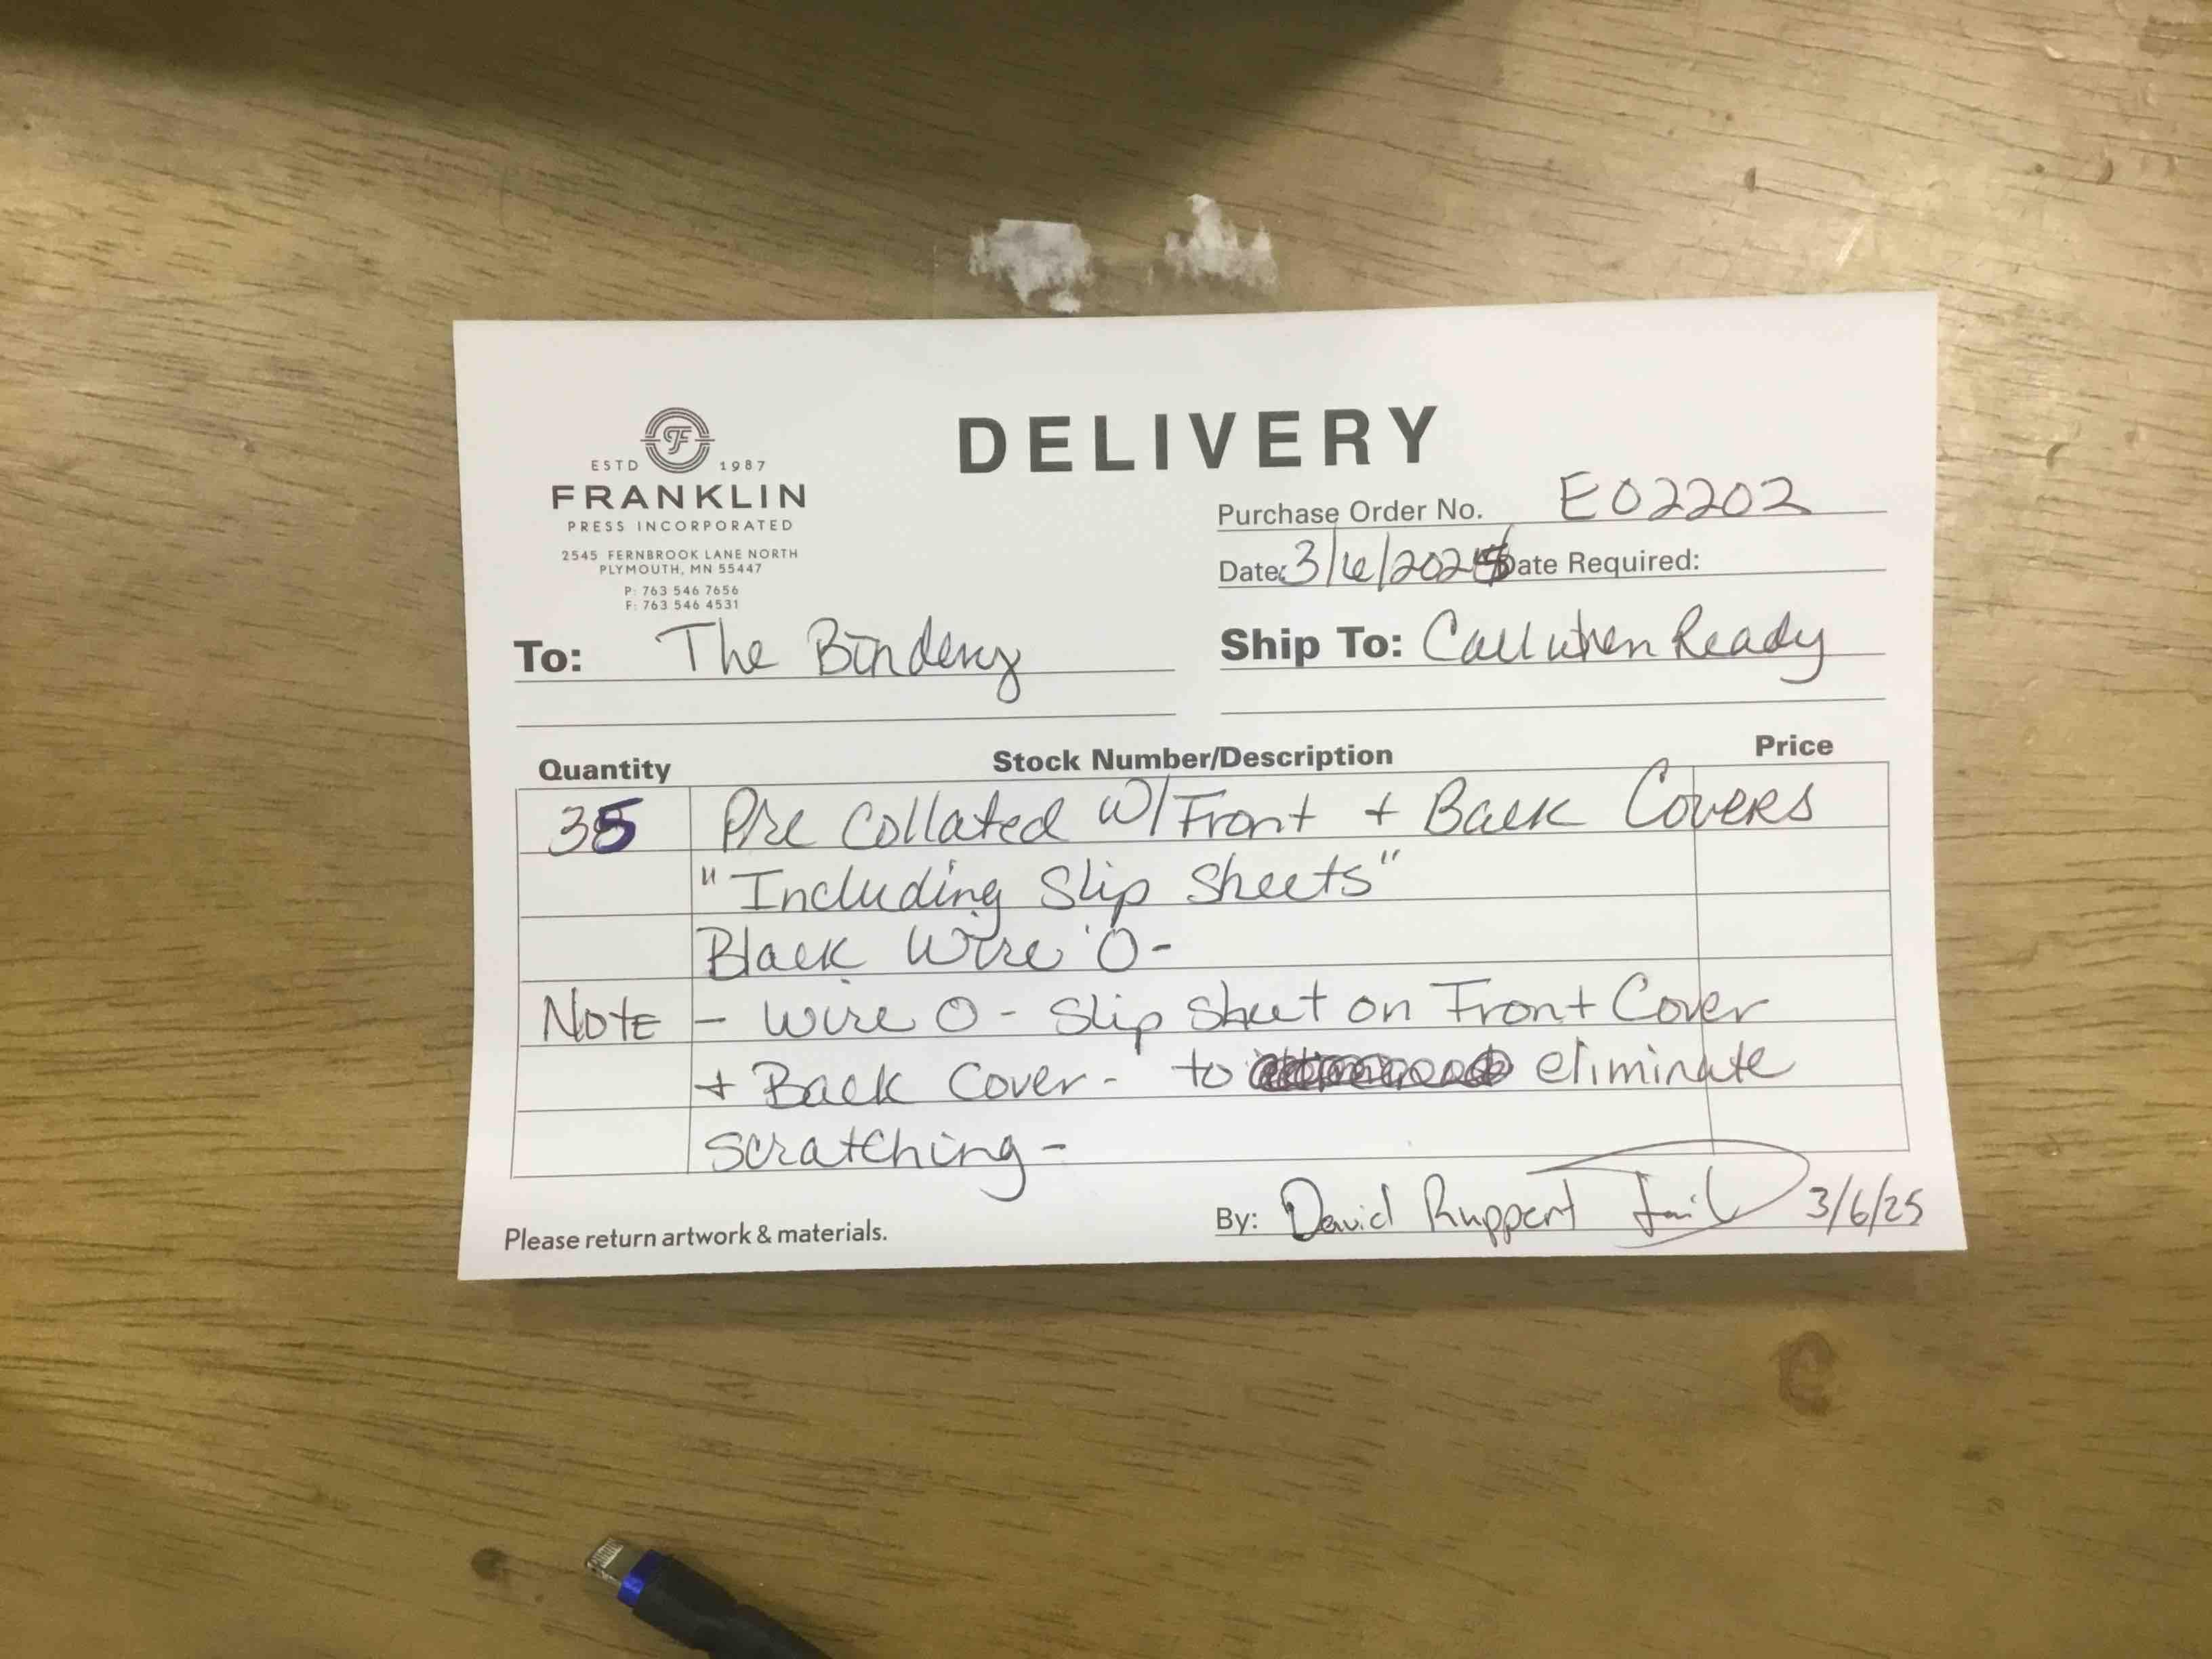 ESTD 1987
FRANKLIN
PRESS INCORPORATED
2545 FERNBROOK LANE NORTH
PLYMOUTH, MN 55447
P: 763 546 7656
F: 763 546 4531
DELIVERY
Purchase Order No. E02202
Date: 3/6/2025 Date Required:
To: The Bindery
Ship To: Call when Ready
Quantity Stock Number/Description Price
35 Pre Collated W/Front + Back Covers
"Including Slip Sheets"
Black Wire 'O-
Note - Wire O - Slip Sheet on Front Cover
+ Back Cover - to eliminate
scratching -
Please return artwork & materials.
By: David Ruppert 3/6/25